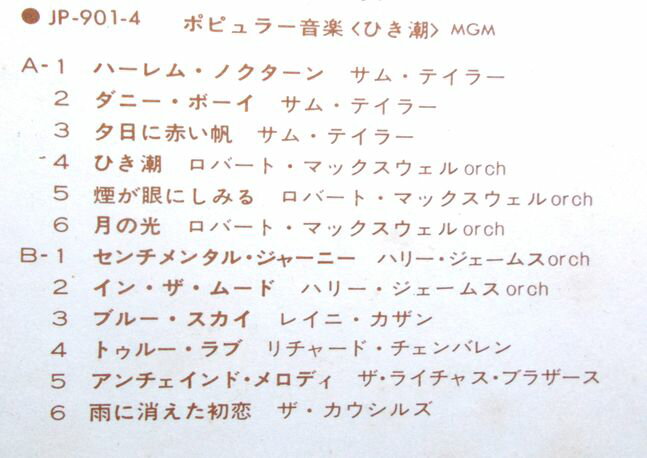 ● JP-901-4 ポピュラー音楽〈ひき潮〉 MGM
A-1 ハーレム・ノクターン サム・テイラー
2 ダニー・ボーイ サム・テイラー
3 夕日に赤い帆 サム・テイラー
4 ひき潮 ロバート・マックスウェルorch
5 煙が眼にしみる ロバート・マックスウェルorch
6 月の光 ロバート・マックスウェルorch
B-1 センチメンタル・ジャーニー ハリー・ジェームスorch
2 イン・ザ・ムード ハリー・ジェームスorch
3 ブルー・スカイ レイニ・カザン
4 トゥルー・ラブ リチャード・チェンバレン
5 アンチェインド・メロディ ザ・ライチャス・ブラザース
6 雨に消えた初恋 ザ・カウシルズ